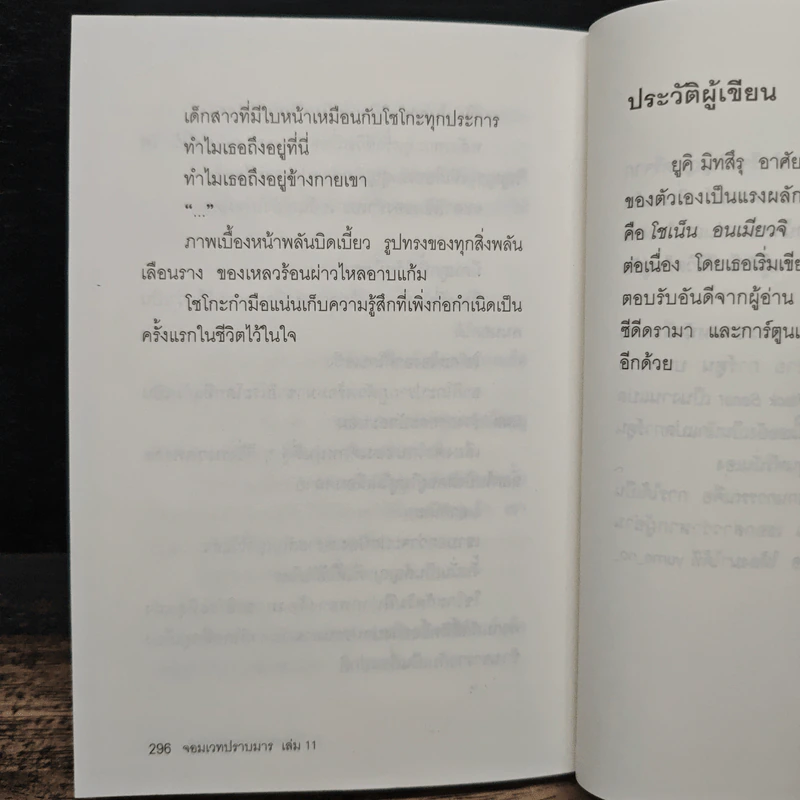 เด็กสาวที่มีใบหน้าเหมือนกับโชโกะทุกประการ
ทำไมเธอถึงอยู่ที่นี่
ทำไมเธอถึงอยู่ข้างกายเขา
“...”
ภาพเบื้องหน้าพลันบิดเบี้ยว รูปทรงของทุกสิ่งพลัน
เลือนราง ของเหลวร้อนผ่าวไหลอาบแก้ม
โชโกะกำมือแน่นเก็บความรู้สึกที่เพิ่งก่อกำเนิดเป็น
ครั้งแรกในชีวิตไว้ในใจ
296 จอมเวทปราบมาร เล่ม 11
ประวัติผู้เขียน
ยูคิ มิทสึรุ อาศัย
ของตัวเองเป็นแรงผลัก
คือ โชเน็น อนเมียวจิ
ต่อเนื่อง โดยเธอเริ่มเขีย
ตอบรับอันดีจากผู้อ่าน
ซีดีดรามา และการ์ตูนแ
อีกด้วย